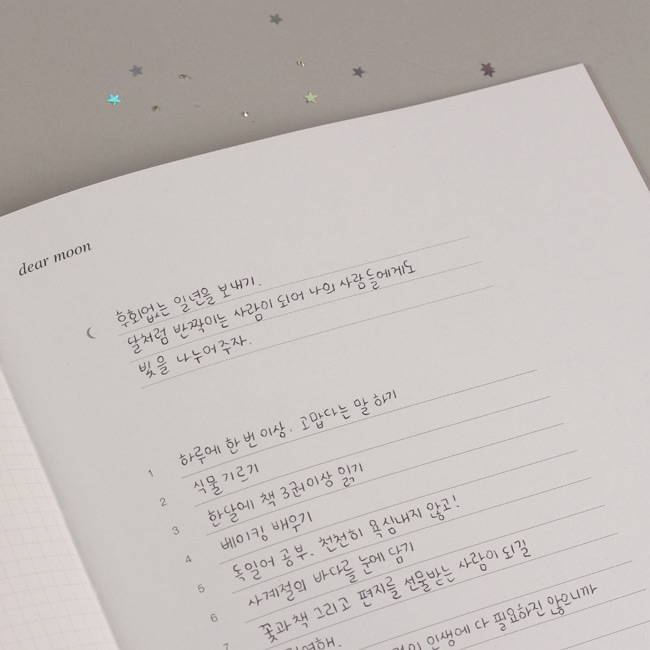 dear moon
후회없는 일년을 보내기.
달처럼 반짝이는 사람이 되어 나의 사람들에게도
빛을 나누어주자.
1 하루에 한번 이상. 고맙다는 말 하기
2 식물 기르기
3 한달에 책 3권이상 읽기
4 베이킹 배우기
5 독일어 공부. 천천히 욕심내지 않고!
6 사계절의 바다를 눈에 담기
7 꽃과 책 그리고 편지를 선물받는 사람이 되길
인생에 다 필요하진 않으니까